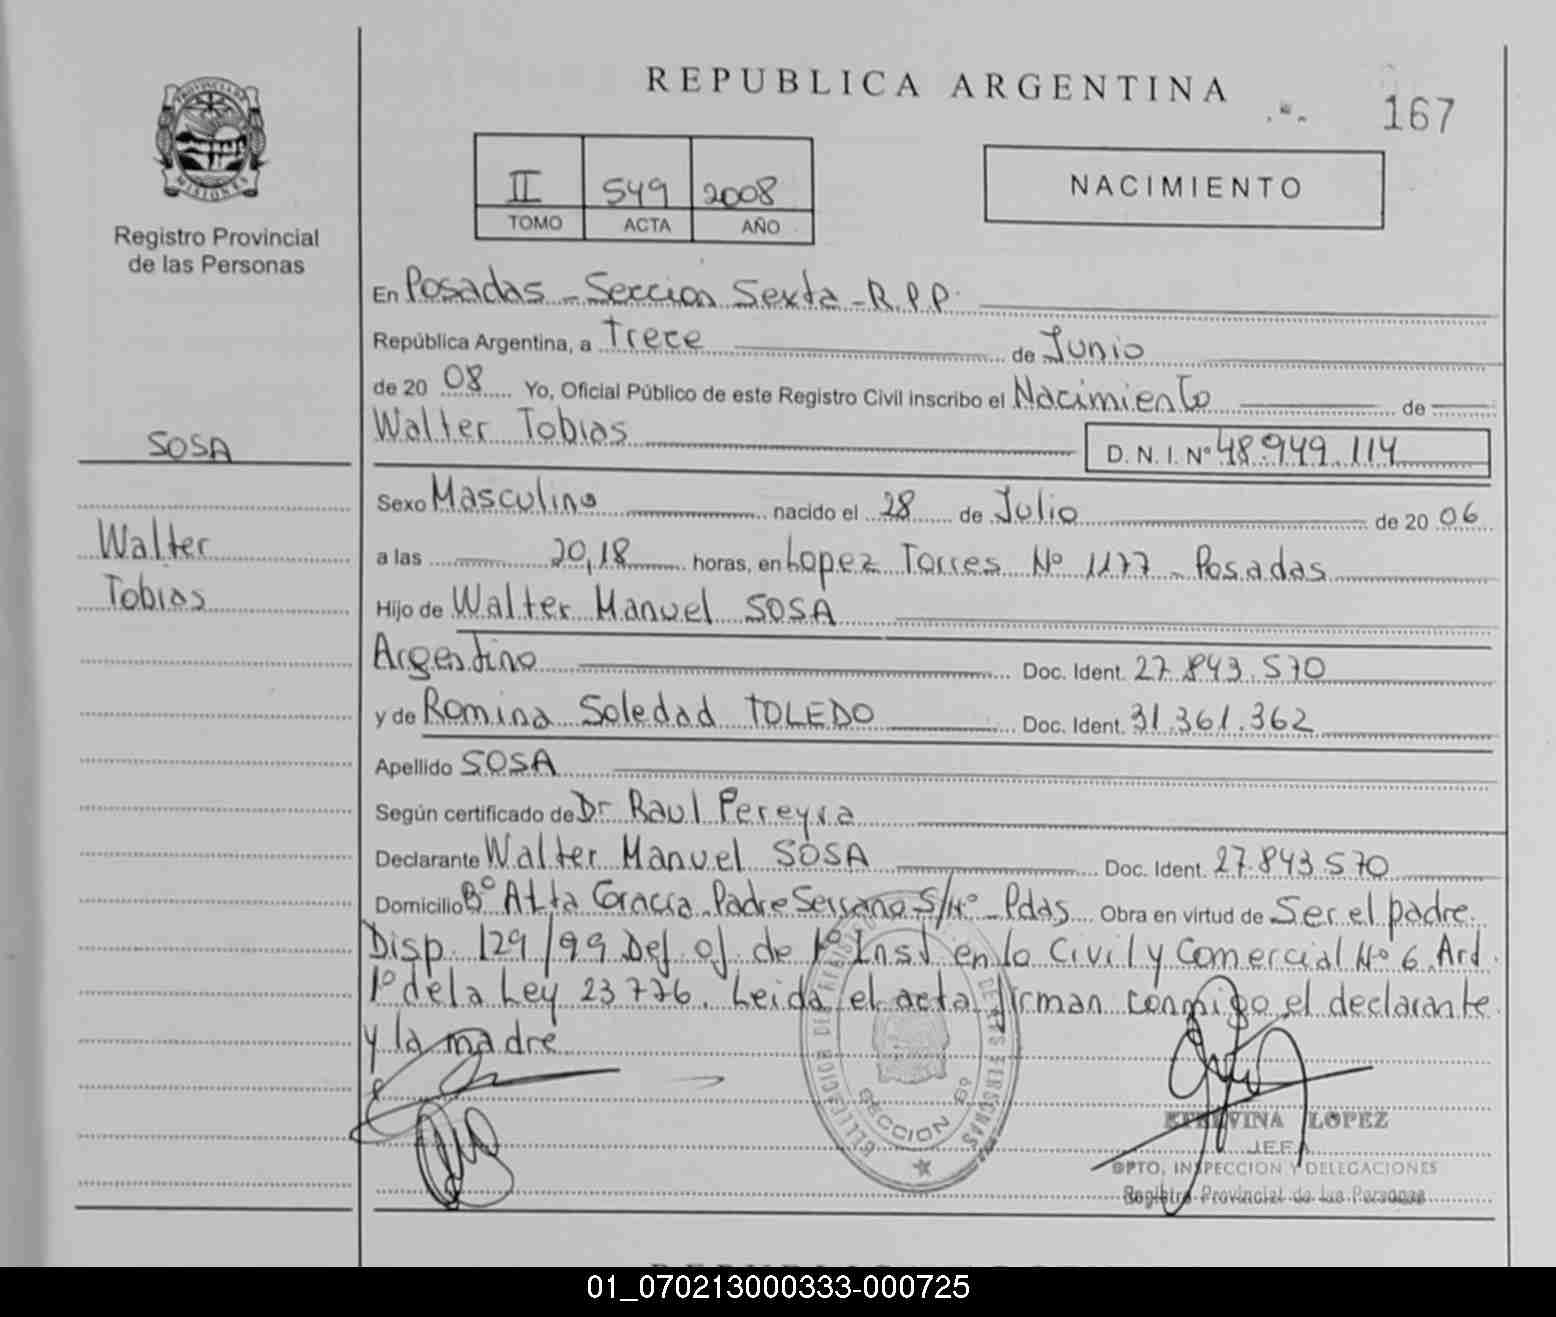 REPUBLICA ARGENTINA
167
PROVINCIA DE
MISIONES
Registro Provincial
de las Personas
II 549 2008
TOMO ACTA AÑO
NACIMIENTO
En Posadas - Seccion Sexta - R.P.P.
República Argentina, a Trece de Junio
de 20 08 Yo, Oficial Público de este Registro Civil inscribo el Nacimiento de
Walter Tobias D. N. I. Nº 48.949.114
SOSA
Walter
Tobias
Sexo Masculino nacido el 28 de Julio de 20 06
a las 20,18 horas, en Lopez Torres Nº 1177 - Posadas
Hijo de Walter Manuel SOSA
Argentino Doc. Ident. 27.843.570
y de Romina Soledad TOLEDO Doc. Ident. 31.361.362
Apellido SOSA
Según certificado de Dr Raul Pereyra
Declarante Walter Manuel SOSA Doc. Ident. 27.843.570
Domicilio Bº Alta Gracia Padre Serrano S/Nº - Pdas Obra en virtud de Ser el padre.
Disp. 129/99 Def. of. de 1º Inst en lo Civil y Comercial Nº 6. Art.
1º de la Ley 23776. Leida el acta firman conmigo el declarante
y la madre
SECCION 6º
LOPEZ
JEFA
DPTO. INSPECCION Y DELEGACIONES
Registro Provincial de las Personas
01_070213000333-000725